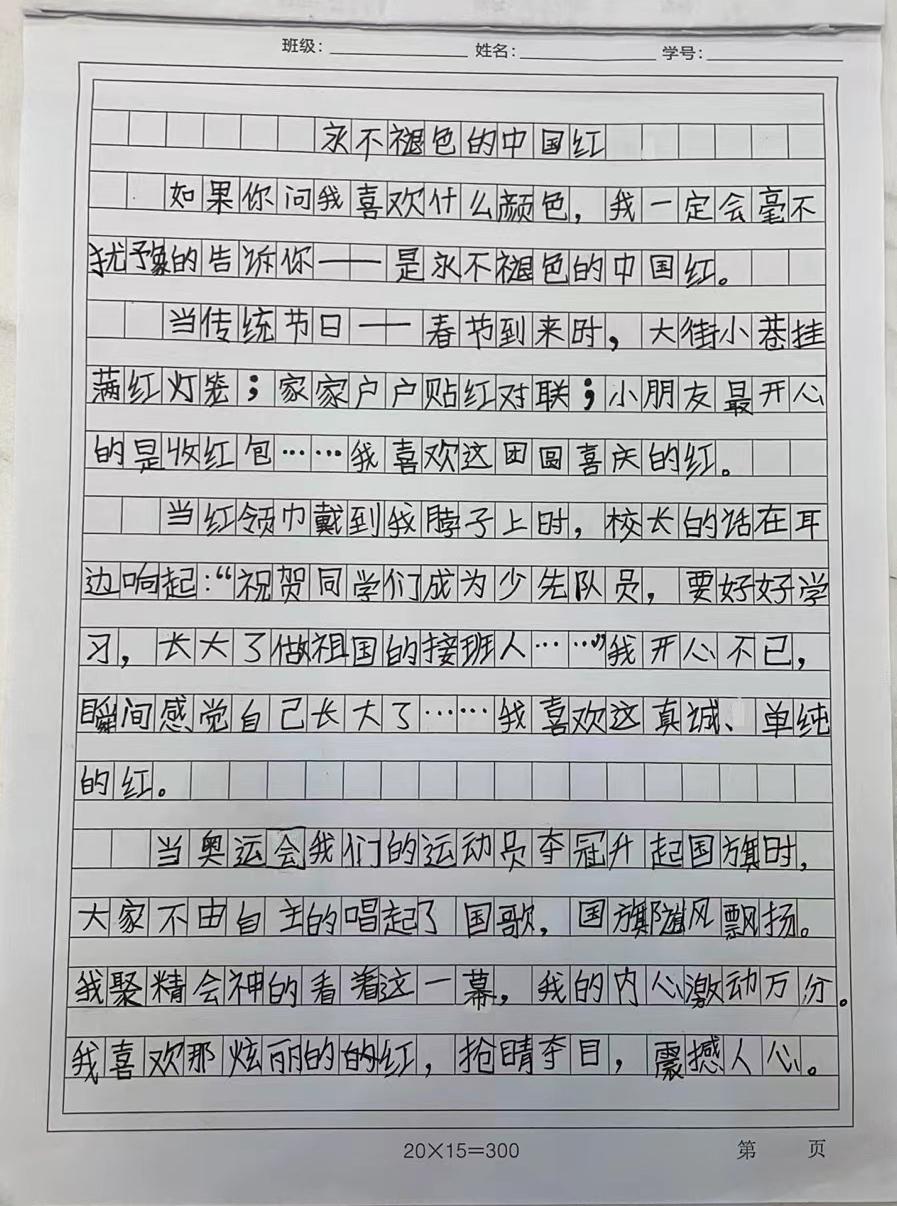 班级： 姓名： 学号：
永不褪色的中国红
如果你问我喜欢什么颜色，我一定会毫不
犹豫的告诉你——是永不褪色的中国红。
当传统节日——春节到来时，大街小巷挂
满红灯笼；家家户户贴红对联；小朋友最开心
的是收红包……我喜欢这团圆喜庆的红。
当红领巾戴到我脖子上时，校长的话在耳
边响起：“祝贺同学们成为少先队员，要好好学
习，长大了做祖国的接班人……”我开心不已，
瞬间感觉自己长大了……我喜欢这真诚、单纯
的红。
当奥运会我们的运动员夺冠升起国旗时，
大家不由自主的唱起了国歌，国旗随风飘扬。
我聚精会神的看着这一幕，我的内心激动万分。
我喜欢那炫丽的的红，抢睛夺目，震撼人心。
20×15=300 第 页